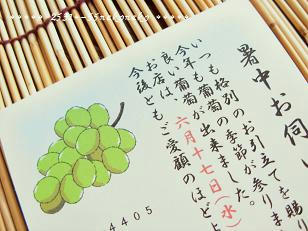 暑中お伺
いつも格別のお引立てを賜り
今年も葡萄の季節が参りま
良い葡萄が出来ました。
お店は、六月十七日(水)
今後ともご愛顧のほど
4405